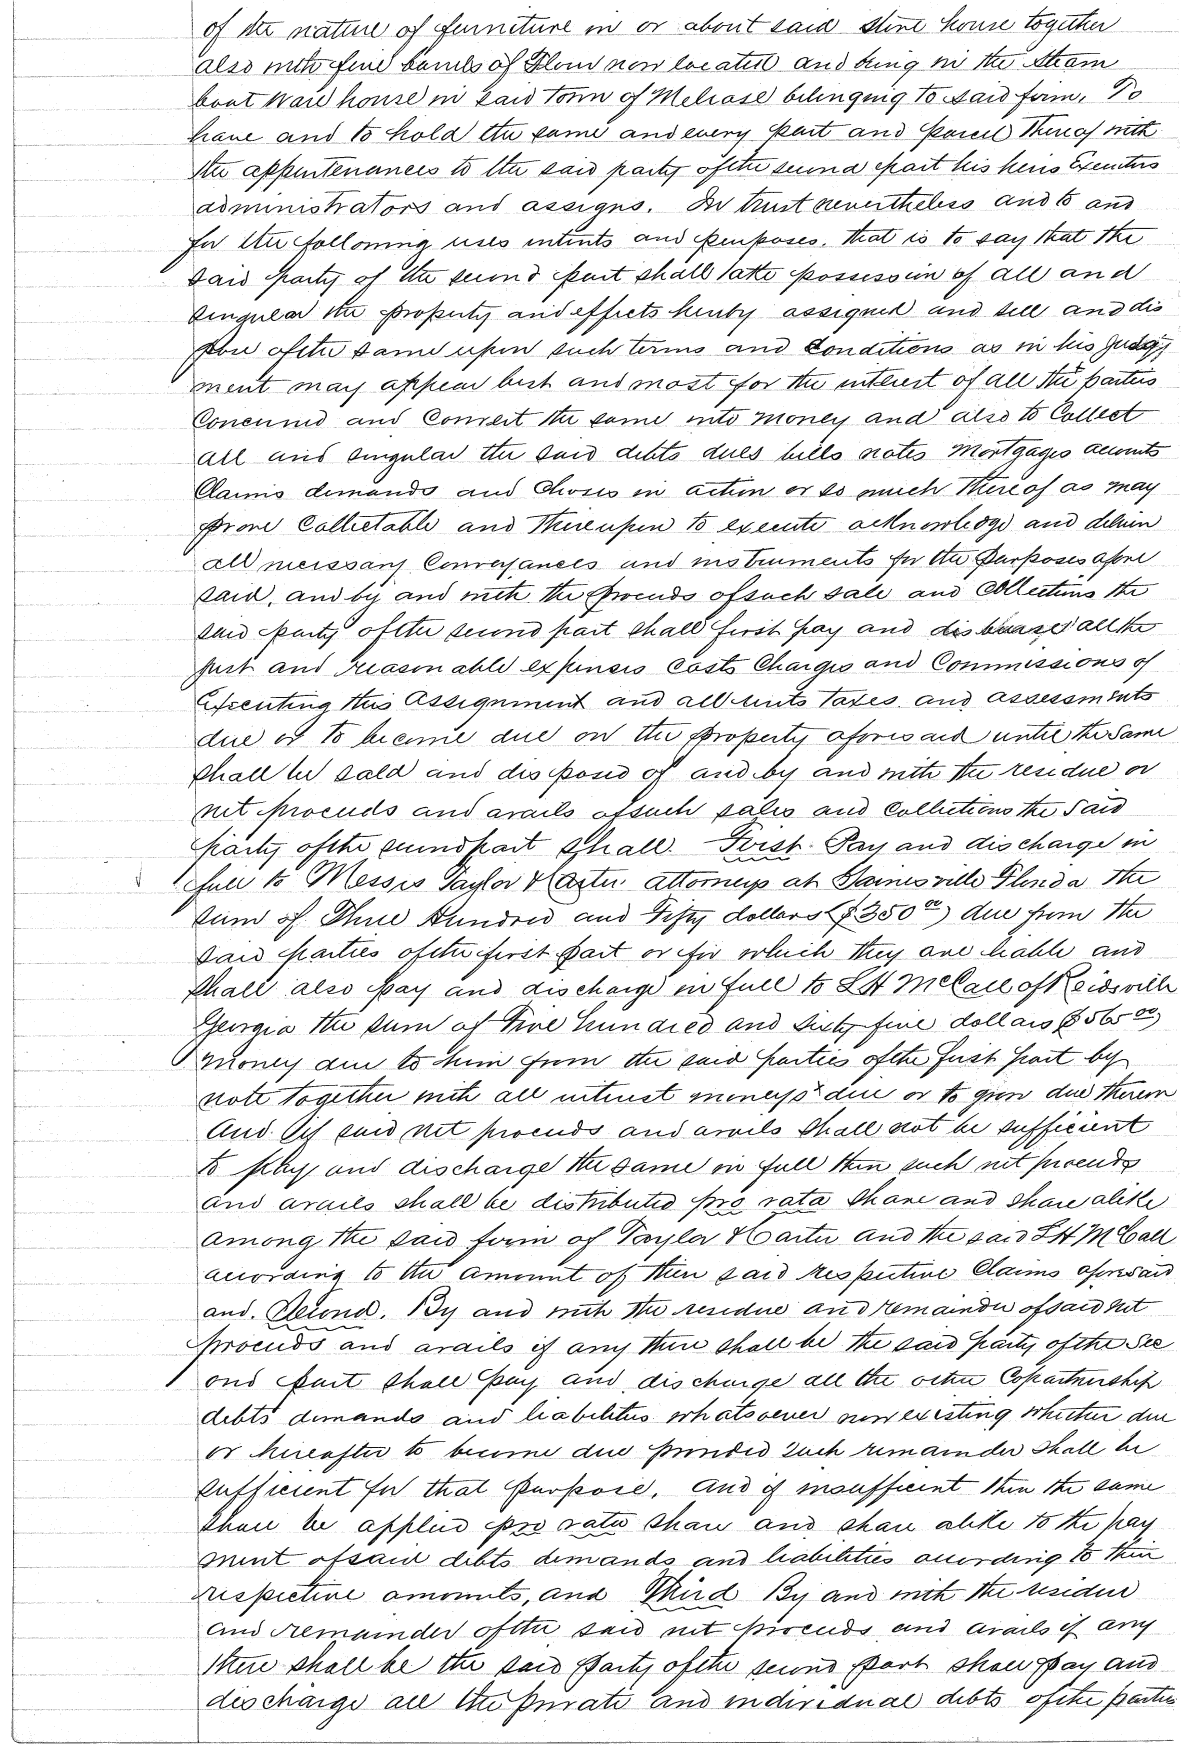 of the nature of furniture in or about said store house together
also with five barrels of Flour now located and being in the Steam
boat Ware house in said Town of Melrose belonging to said firm. To
have and to hold the same and every part and parcel thereof with
the appurtenances to the said party of the second part his heirs Executors
administrators and assigns. In trust nevertheless and to and
for the following uses intents and purposes. that is to say that the
said party of the second part shall take possession of all and
singular the property and effects hereby assigned and sell and dis
pose of the same upon such terms and Conditions as in his judg
ment may appear best and most for the interest of all the parties
Concerned and Convert the same into money and also to Collect
all and singular the said debts dues bills notes Mortgages accounts
Claims demands and Choses in action or so much thereof as may
prove Collectable and thereupon to execute acknowledge and deliver
all necessary Conveyances and instruments for the Purposes afore
said. and by and with the proceeds of such sale and Collections the
said party of the second part shall first pay and disburse all the
just and reasonable expenses costs Charges and Commissions of
Executing this Assignment and all rents Taxes and assessments
due or to become due on the property aforesaid until the same
shall be sold and disposed of and by and with the residue or
net proceeds and avails of such sales and Collections the said
party of the second part shall. First. Pay and discharge in
full to Messrs Taylor & Carter attorneys at Gainesville Florida the
sum of Three Hundred and Fifty dollars ($350 00) due from the
said parties of the first part or for which they are liable and
shall also pay and discharge in full to L H McCall of Reidsville
Georgia the sum of Five hundred and sixty five dollars $565 00
money due to him from the said parties of the first part by
note together with all interest moneys due or to grow due thereon
And if said net proceeds and avails shall not be sufficient
to pay and discharge the same in full then such net proceeds
and avails shall be distributed pro rata share and share alike
among the said firm of Taylor & Carter and the said L H McCall
according to the amount of their said respective Claims aforesaid
and. Second. By and with the residue and remainder of said net
proceeds and avails if any there shall be the said party of the sec
ond part shall pay and discharge all the other Copartnership
debts demands and liabilities whatsoever now existing whether due
or hereafter to become due provided such remainder shall be
sufficient for that purpose, and if insufficient then the same
shall be applied pro rata share and share alike to the pay
ment of said debts demands and liabilities according to their
respective amounts, and Third By and with the residue
and remainder of the said net proceeds and avails if any
there shall be the said party of the second part shall pay and
discharge all the private and individual debts of the parties